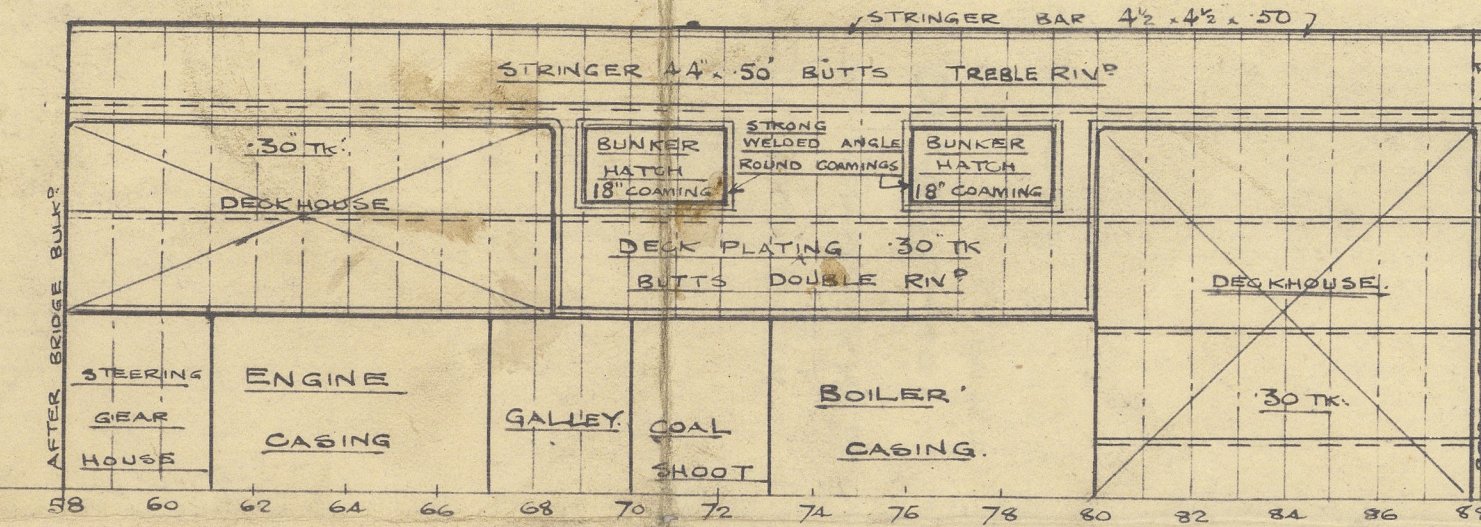 STRINGER BAR 4½ × 4½ × .50
STRINGER 44" × .50" BUTTS TREBLE RIVD
.30" TK.
DECKHOUSE
BUNKER
HATCH
18" COAMING
STRONG
WELDED ANGLE
ROUND COAMINGS
BUNKER
HATCH
18" COAMING
DECK PLATING .30" TK
BUTTS DOUBLE RIVD
DECKHOUSE.
.30 TK.
AFTER BRIDGE BULKD.
STEERING
GEAR
HOUSE
ENGINE
CASING
GALLEY.
COAL
SHOOT
BOILER
CASING.
58 60 62 64 66 68 70 72 74 76 78 80 82 84 86